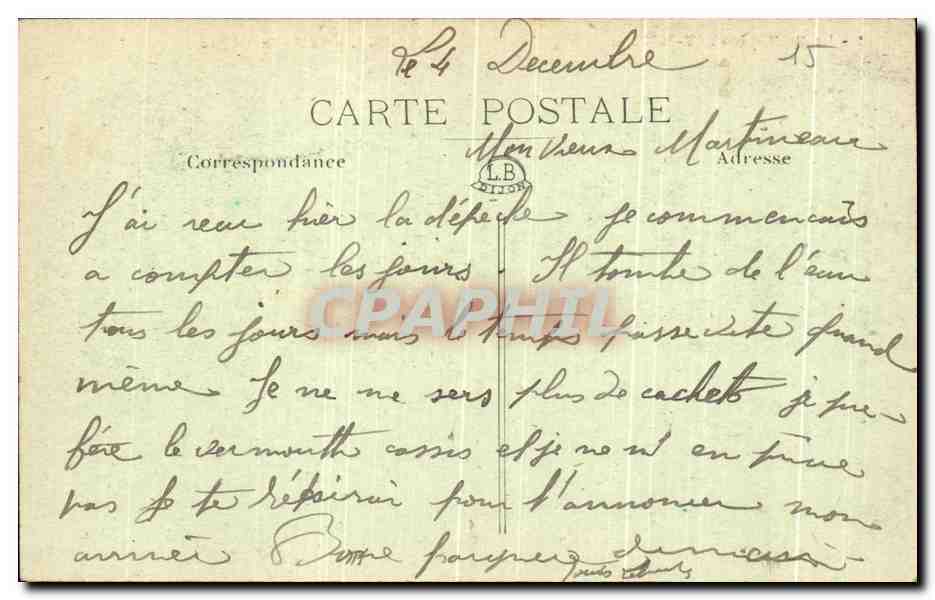 Le 4 Decembre 15
CARTE POSTALE
Mon vieux Martineau
Correspondance
Adresse
L.B
DIJON
J'ai reçu hier la dépêche je commencais
a compter les jours. Il tombe de l'eau
tous les jours mais le temps passe vite quand
même Je ne me sers plus de cachets je pre-
fére le vermouth cassis et je ne m'en prive
pas Je te pour t'annoncer mon
arrivée Bonne
CPAPHIL